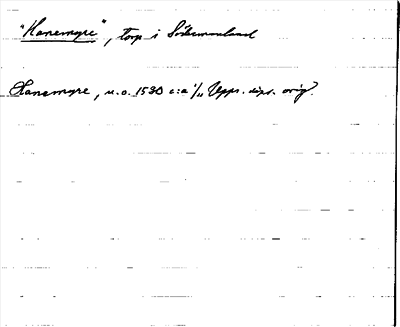 "Hanemyre", torp i Södermanland
Hanemyre, u.o. 1530 c:a 1/11 Upps. dipl. orig.